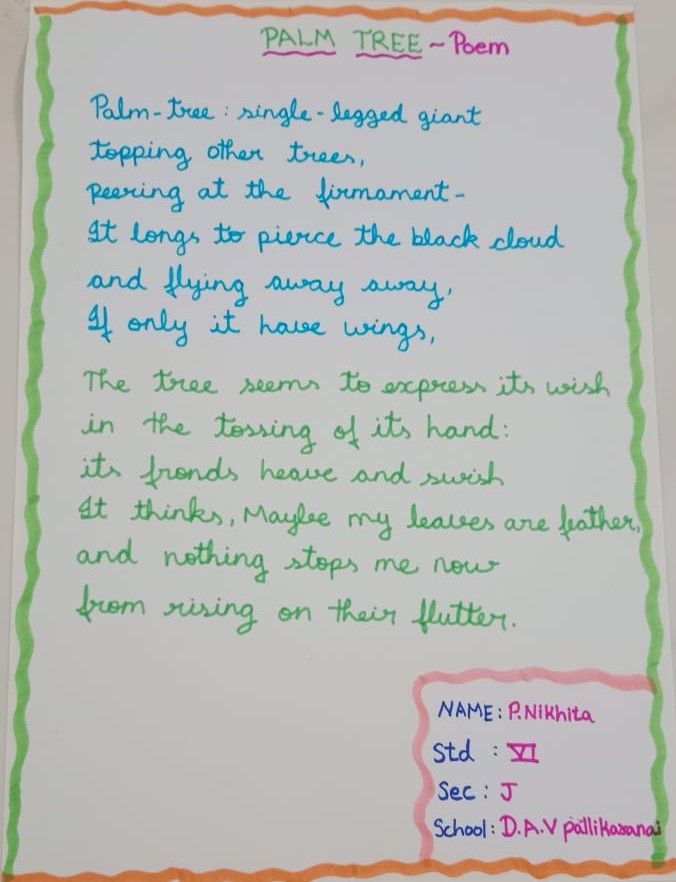 PALM TREE ~ Poem
Palm-tree : single-legged giant
topping other trees,
peering at the firmament-
It longs to pierce the black cloud
and flying away away,
If only it have wings,
The tree seems to express its wish
in the tossing of its hand:
its fronds heave and swish
It thinks, Maybe my leaves are feather,
and nothing stops me now
from rising on their flutter.
NAME: P.Nikhita
Std : VI
Sec : J
School: D.A.V pallikaranai